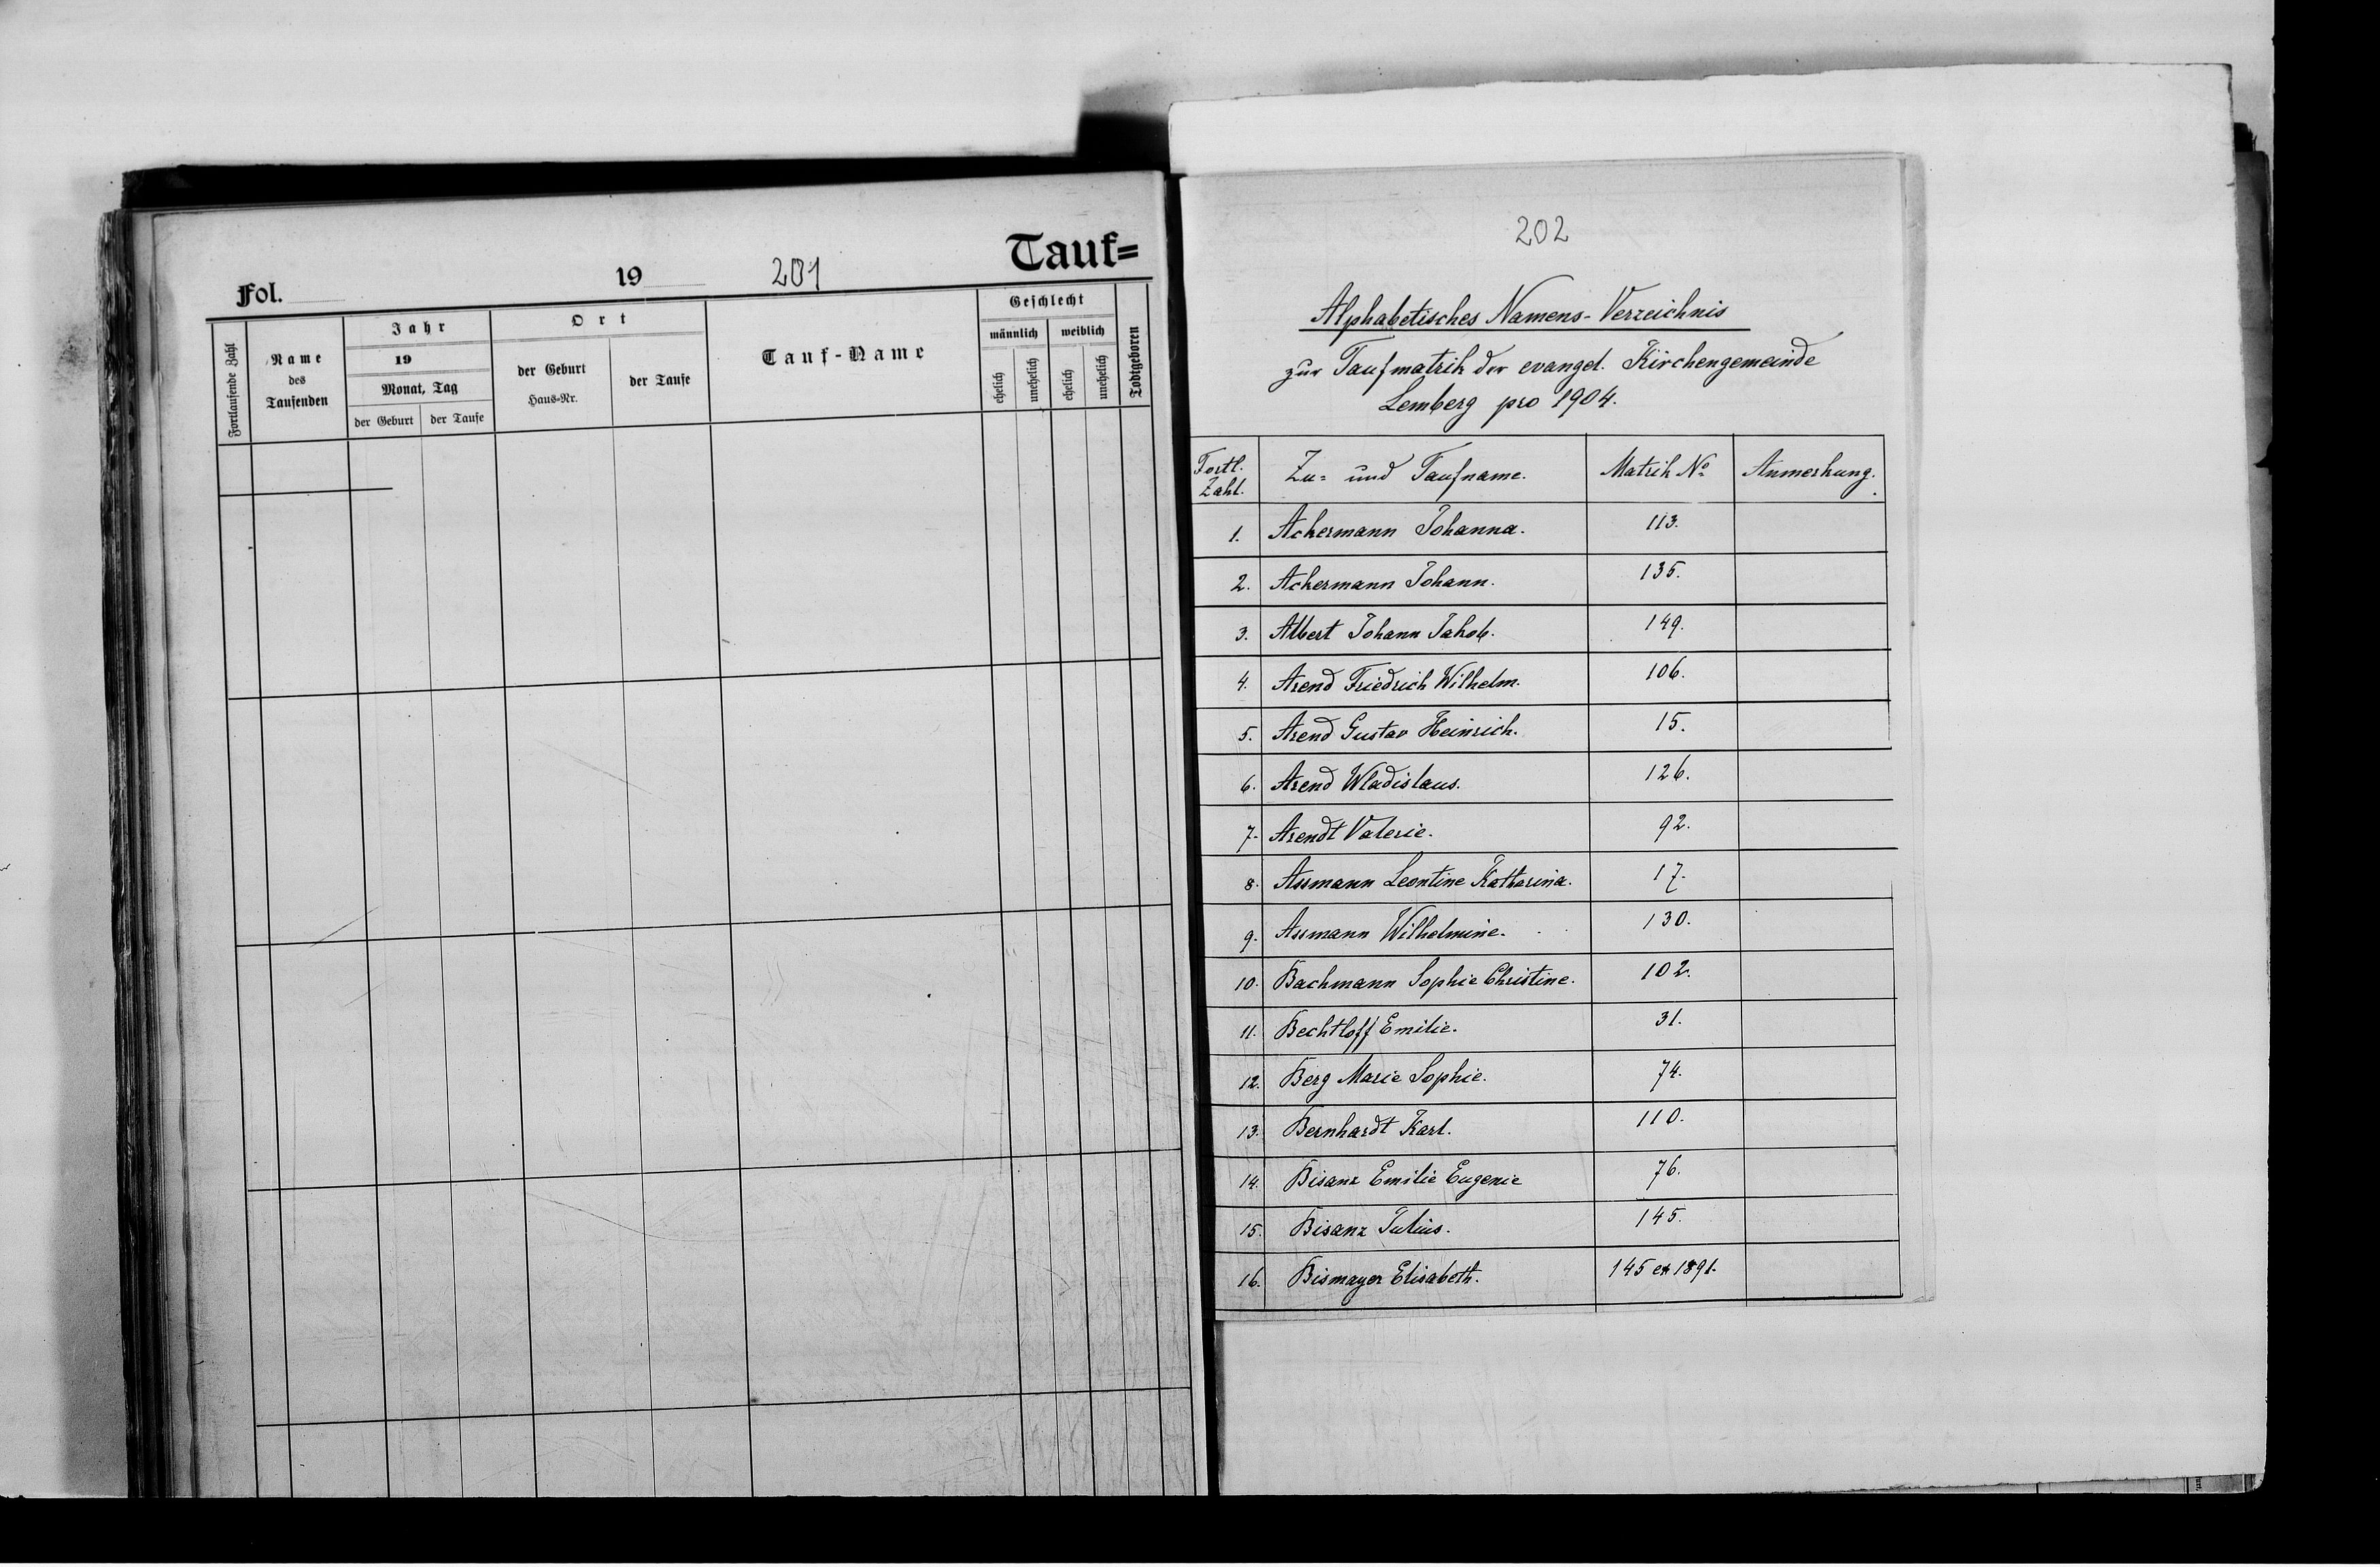 Tauf=
Fol. 19 201
Fortlaufende Zahl
Name des Taufenden
Jahr
19
Monat, Tag
der Geburt
der Taufe
Ort
der Geburt
Haus-Nr.
der Taufe
Tauf-Name
Geschlecht
männlich
weiblich
ehelich
unehelich
ehelich
unehelich
Todtgeboren
202
Alphabetisches Namens-Verzeichnis
zur Taufmatrik der evangel. Kirchengemeinde
Lemberg pro 1904.
Fortl. Zahl. Zu= und Taufname. Matrik No Anmerkung.
1. Ackermann Johanna. 113.
2. Ackermann Johann. 135.
3. Albert Johann Jakob. 149.
4. Arend Friedrich Wilhelm. 106.
5. Arend Gustav Heinrich. 15.
6. Arend Wladislaus. 126.
7. Arendt Valerie. 92.
8. Assmann Leontine Katharina. 17.
9. Assmann Wilhelmine. 130.
10. Bachmann Sophie Christine. 102.
11. Bechtloff Emilie. 31.
12. Berg Marie Sophie. 74.
13. Bernhardt Karl. 110.
14. Bisanz Emilie Eugenie 76.
15. Bisanz Julius. 145.
16. Bismayer Elisabeth. 145 ex 1891.